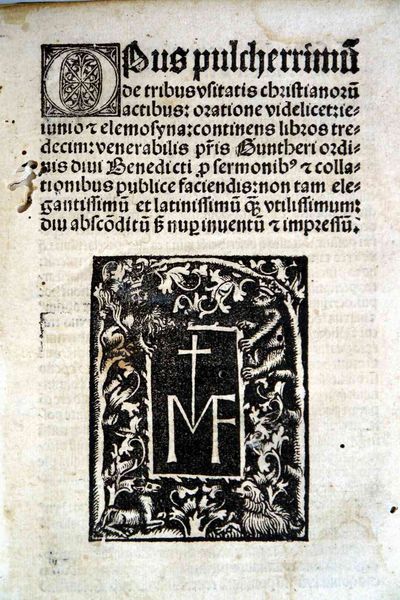 Opus pulcherrimū
de tribus vsitatis christianorū
actibus: oratione videlicet: ie-
iunio ⁊ elemosyna: continens libros tre-
decim: venerabilis p̄ris Guntheri ordi-
nis diui Benedicti ꝓ sermonibꝰ ⁊ colla-
tionibus publice faciendis: non tam ele-
gantissimū et latinissimū qꝫ vtilissimum:
diu abscōditū ſꝫ nuꝑ inuentū ⁊ impressū.
MF